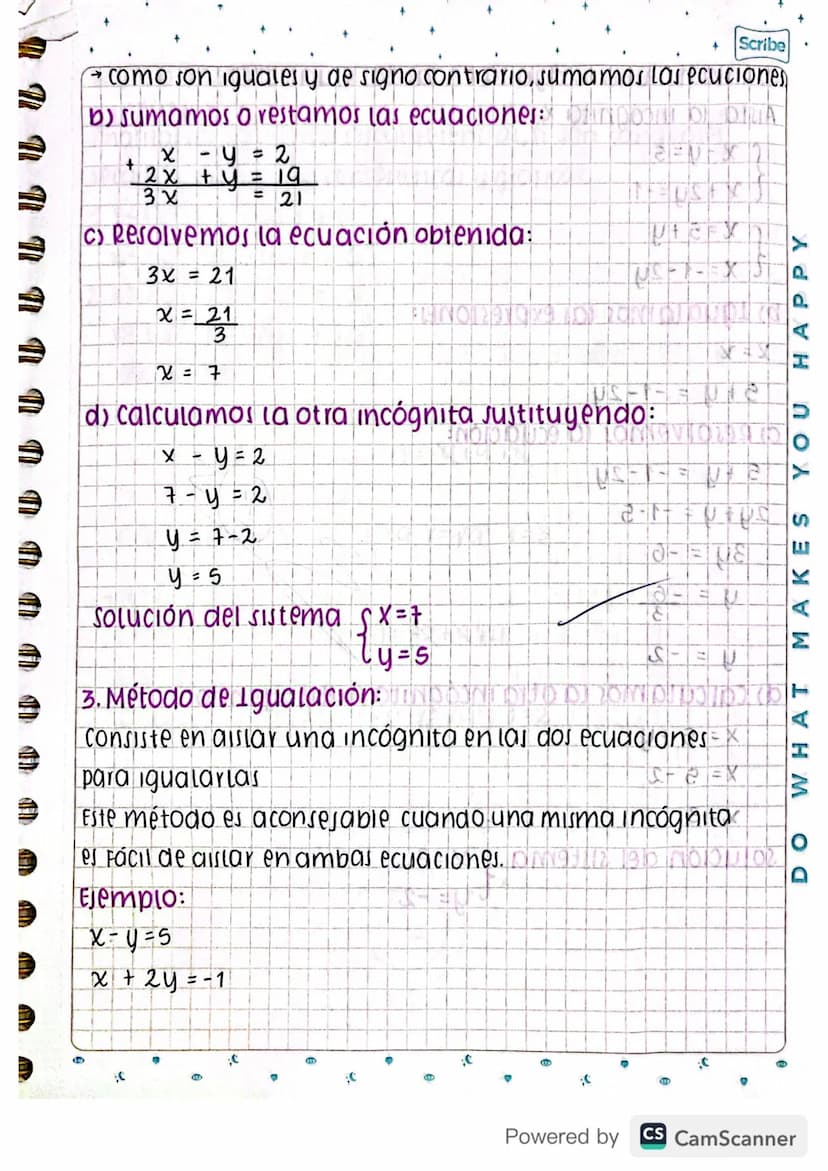 Scribe
→ como son iguales y de signo contrario, sumamos las ecuciones
b) sumamos o restamos las ecuaciones:
+ x - y = 2
2x + y = 19
3x = 21
c) Resolvemos la ecuación obtenida:
3x = 21
x = 21
3
x = 7
d) calculamos la otra incógnita sustituyendo:
x - y = 2
7 - y = 2
y = 7-2
y = 5
solución del sistema { x = 7
y = 5
3. Método de Igualación:
consiste en aislar una incógnita en las dos ecuaciones
para igualarlas
Este método es aconsejable cuando una misma incógnita
es Fácil de aislar en ambas ecuaciones.
Ejemplo:
x - y = 5
x + 2y = -1
DO WHAT MAKES YOU HAPPY
Powered by CS CamScanner